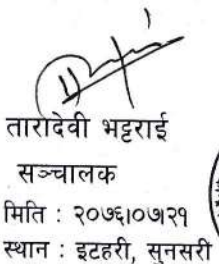 तारादेवी भट्टराई
सञ्चालक
मिति : २०७६।०७।२१
स्थान : इटहरी, सुनसरी